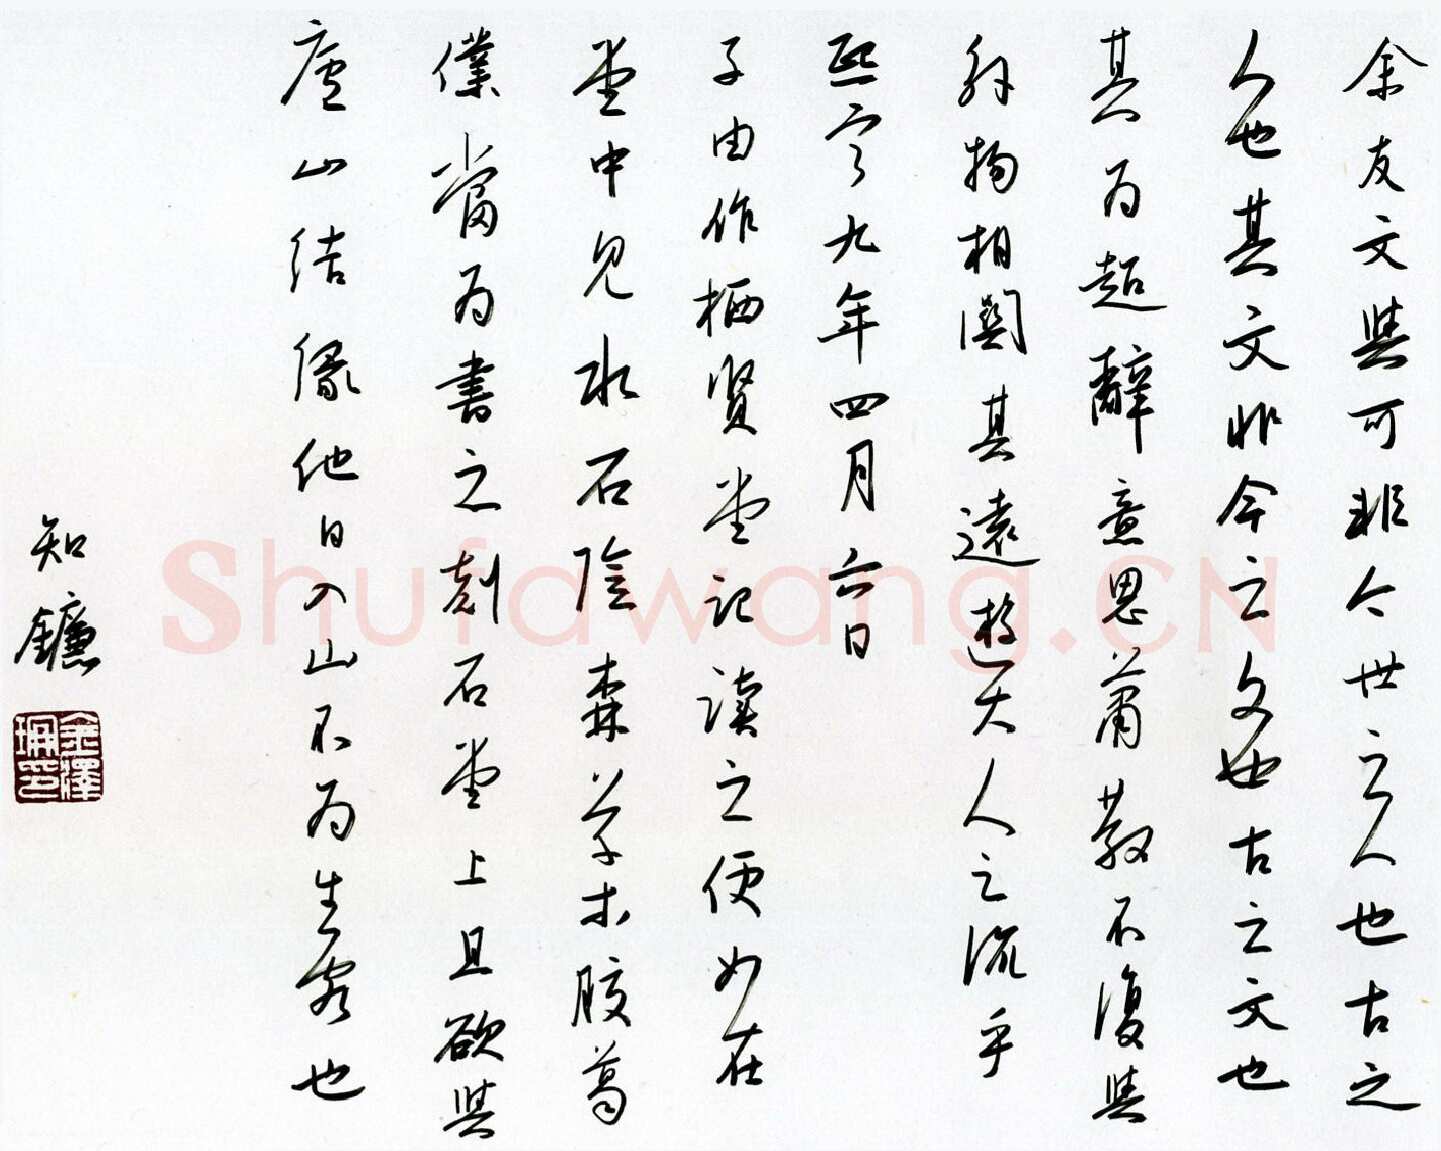 余友文與可非今世之人也古之
人也其文非今之文也古之文也
其为超辭意思蕭散不復與
外物相関其遠遊大人之流乎
熙宁九年四月六日
子由作栖贤堂记读之便如在
堂中见水石陰森草木膠葛
僕當为書之刻石堂上且欲與
廬山结緣他日入山不为生客也
知鐮
金澤珊印
Shufawang.CN